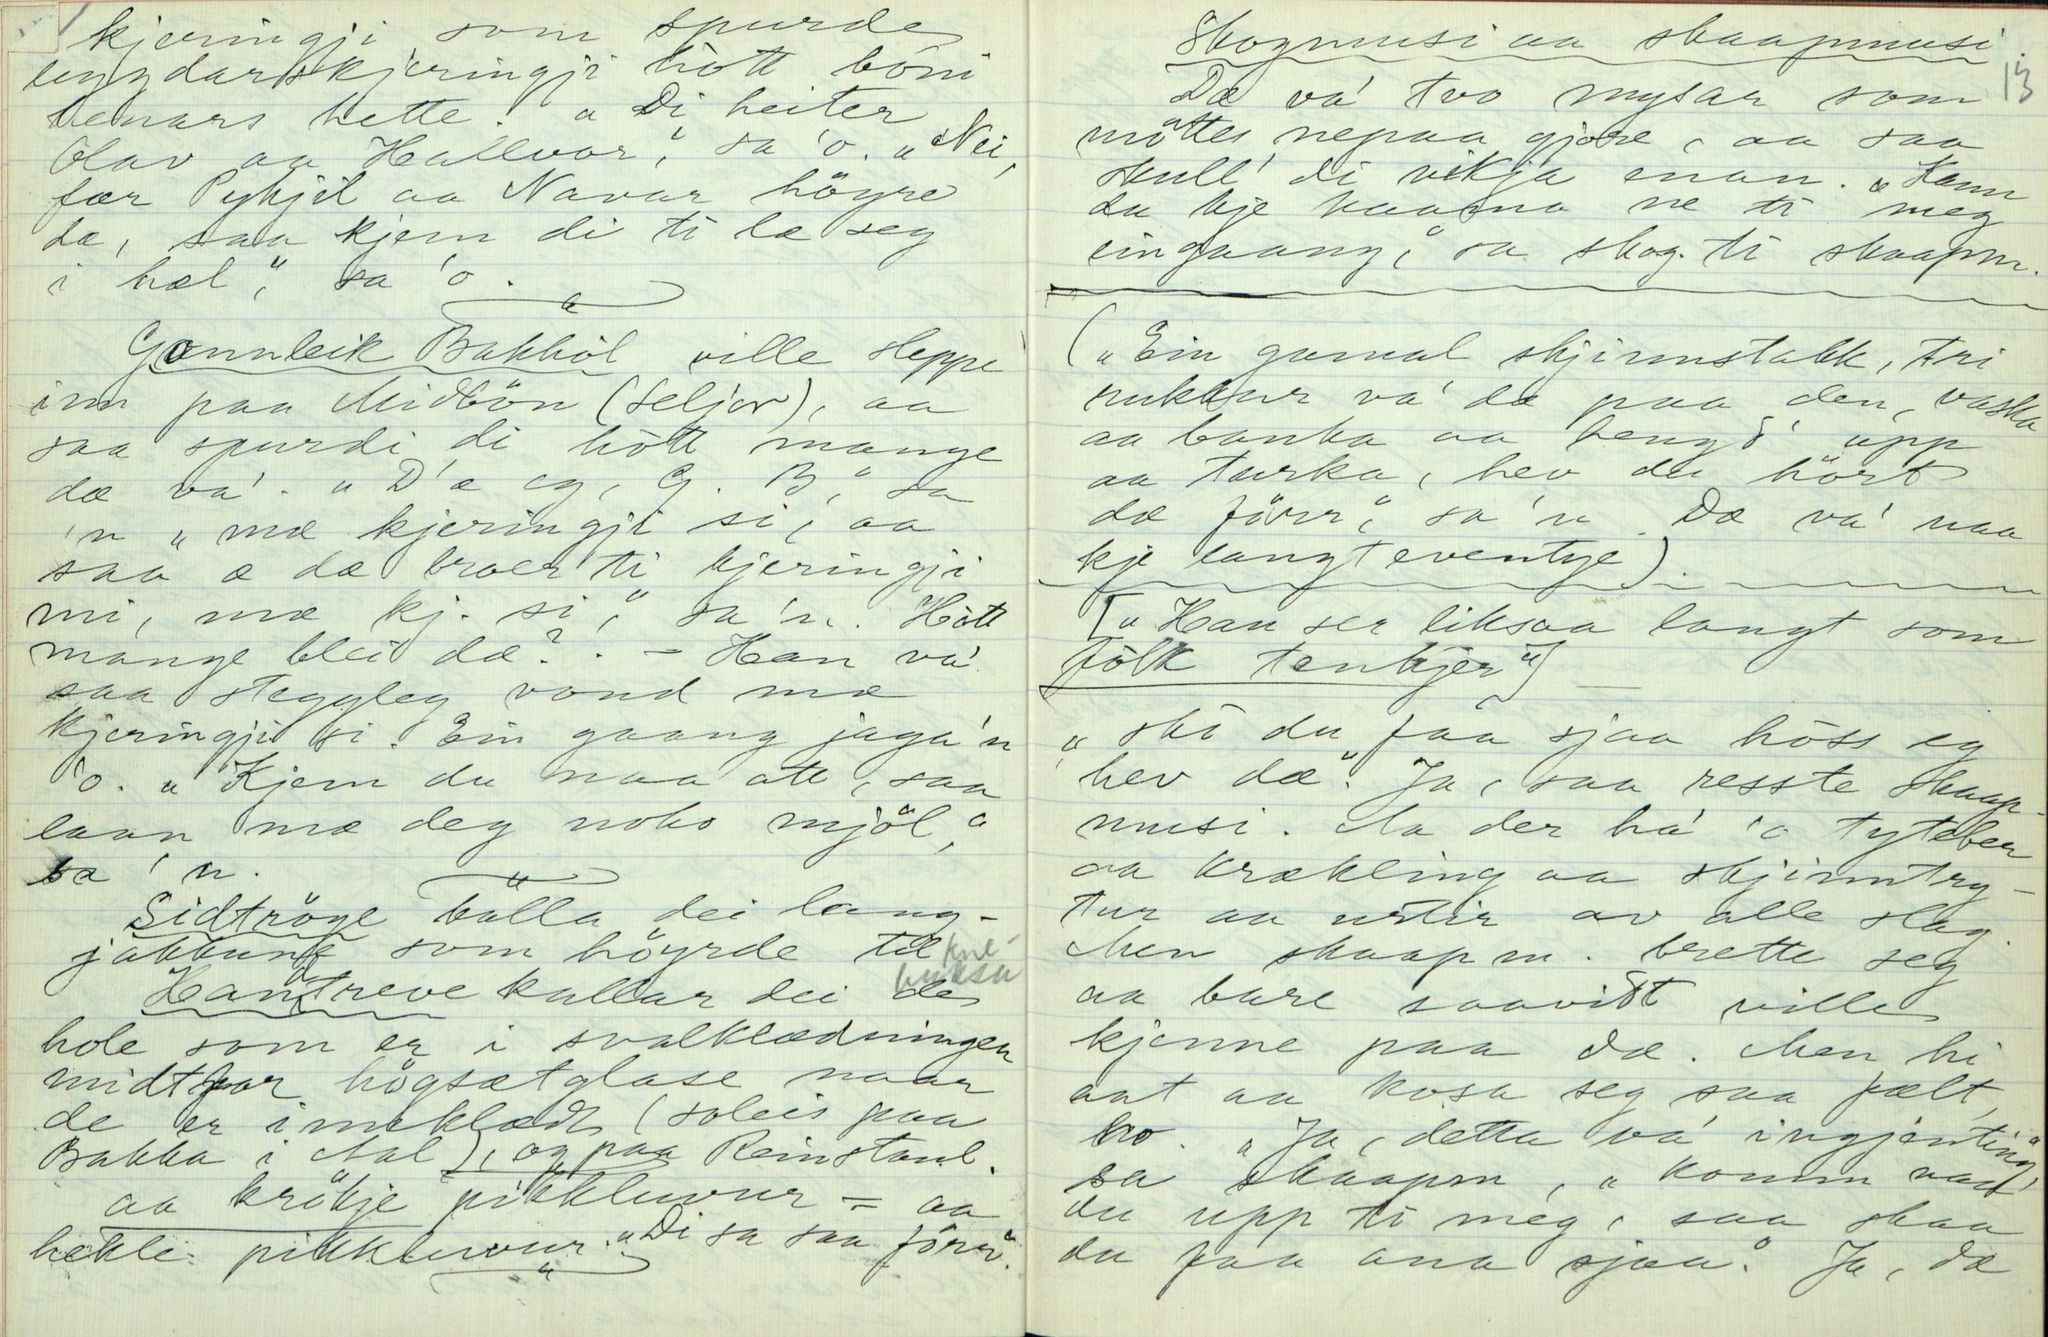 kjeringji som spurde
legdarskjeringji hòtt bóni
hennars hette. „Di heiter
Olav aa Hallvor," sa 'o. „Nei,
fær Pyhjil aa Navar höyre
dæ, saa kjem di ti læ seg
i hæl," sa 'o.
Gonnleik Bakhòl ville sleppe
inn paa Midbön (Seljor), aa
saa spurdi di hòtt mange
dæ va'. „D'æ eg, G. B," sa
'n „mæ kjeringji si, aa
saa æ dæ broer ti kjeringji
mi, mæ kj. si," sa 'n. Hòtt
mange blei dæ? - Han va'
saa steggleg vond mæ
kjeringji si. Ein gaang jaga 'n
'o. „Kjem du naa att, saa
laan mæ deg noko mjöl,"
sa 'n.
Sidtröge kalla dei lang-
jakkune som höyrde til kne-
buksu
Hanstreve kallar dei de
hole som er i svalklædningen
midt for högsætglase naar
de er imeklædt (soleis paa
Bakka i Aal), og paa Reinstaul.
aa krökje pikkluvur = aa
hekle pikkluvur. „Di sa saa förr".
Skogmusi aa skaapmusi
13
Dæ va' tvo mysar som
möttes nepaa gjore, aa saa
skull' di vikja enan. „Kann
du kje kaama ne ti meg
eingaang," sa skog. ti skaapm.
(„Ein gamal skjinnstakk, tri
rukkur va' dæ paa den, vaska
aa banka aa hengd' upp
aa turka, hev du hört
dæ förr," sa 'n. Dæ va' naa
kje langt eventye).
[„Han ser liksaa langt som
fölk tenkjer"]
„skò du faa sjaa höss eg
hev dæ". Ja, saa resste skaap-
musi. Aa der ha' 'o tyteber
aa krækling aa skjinntry-
tur aa nötir av alle slag.
Men skaapm. brette seg
aa bare saavidt ville
kjenne paa dæ. Men hi
aat aa kosa seg saa fælt,
ho. „Ja, detta va' ingjenting"
sa skaapm, „komm naa
du upp ti meg, saa skaa
du faa ana sjaa." Ja, dæ